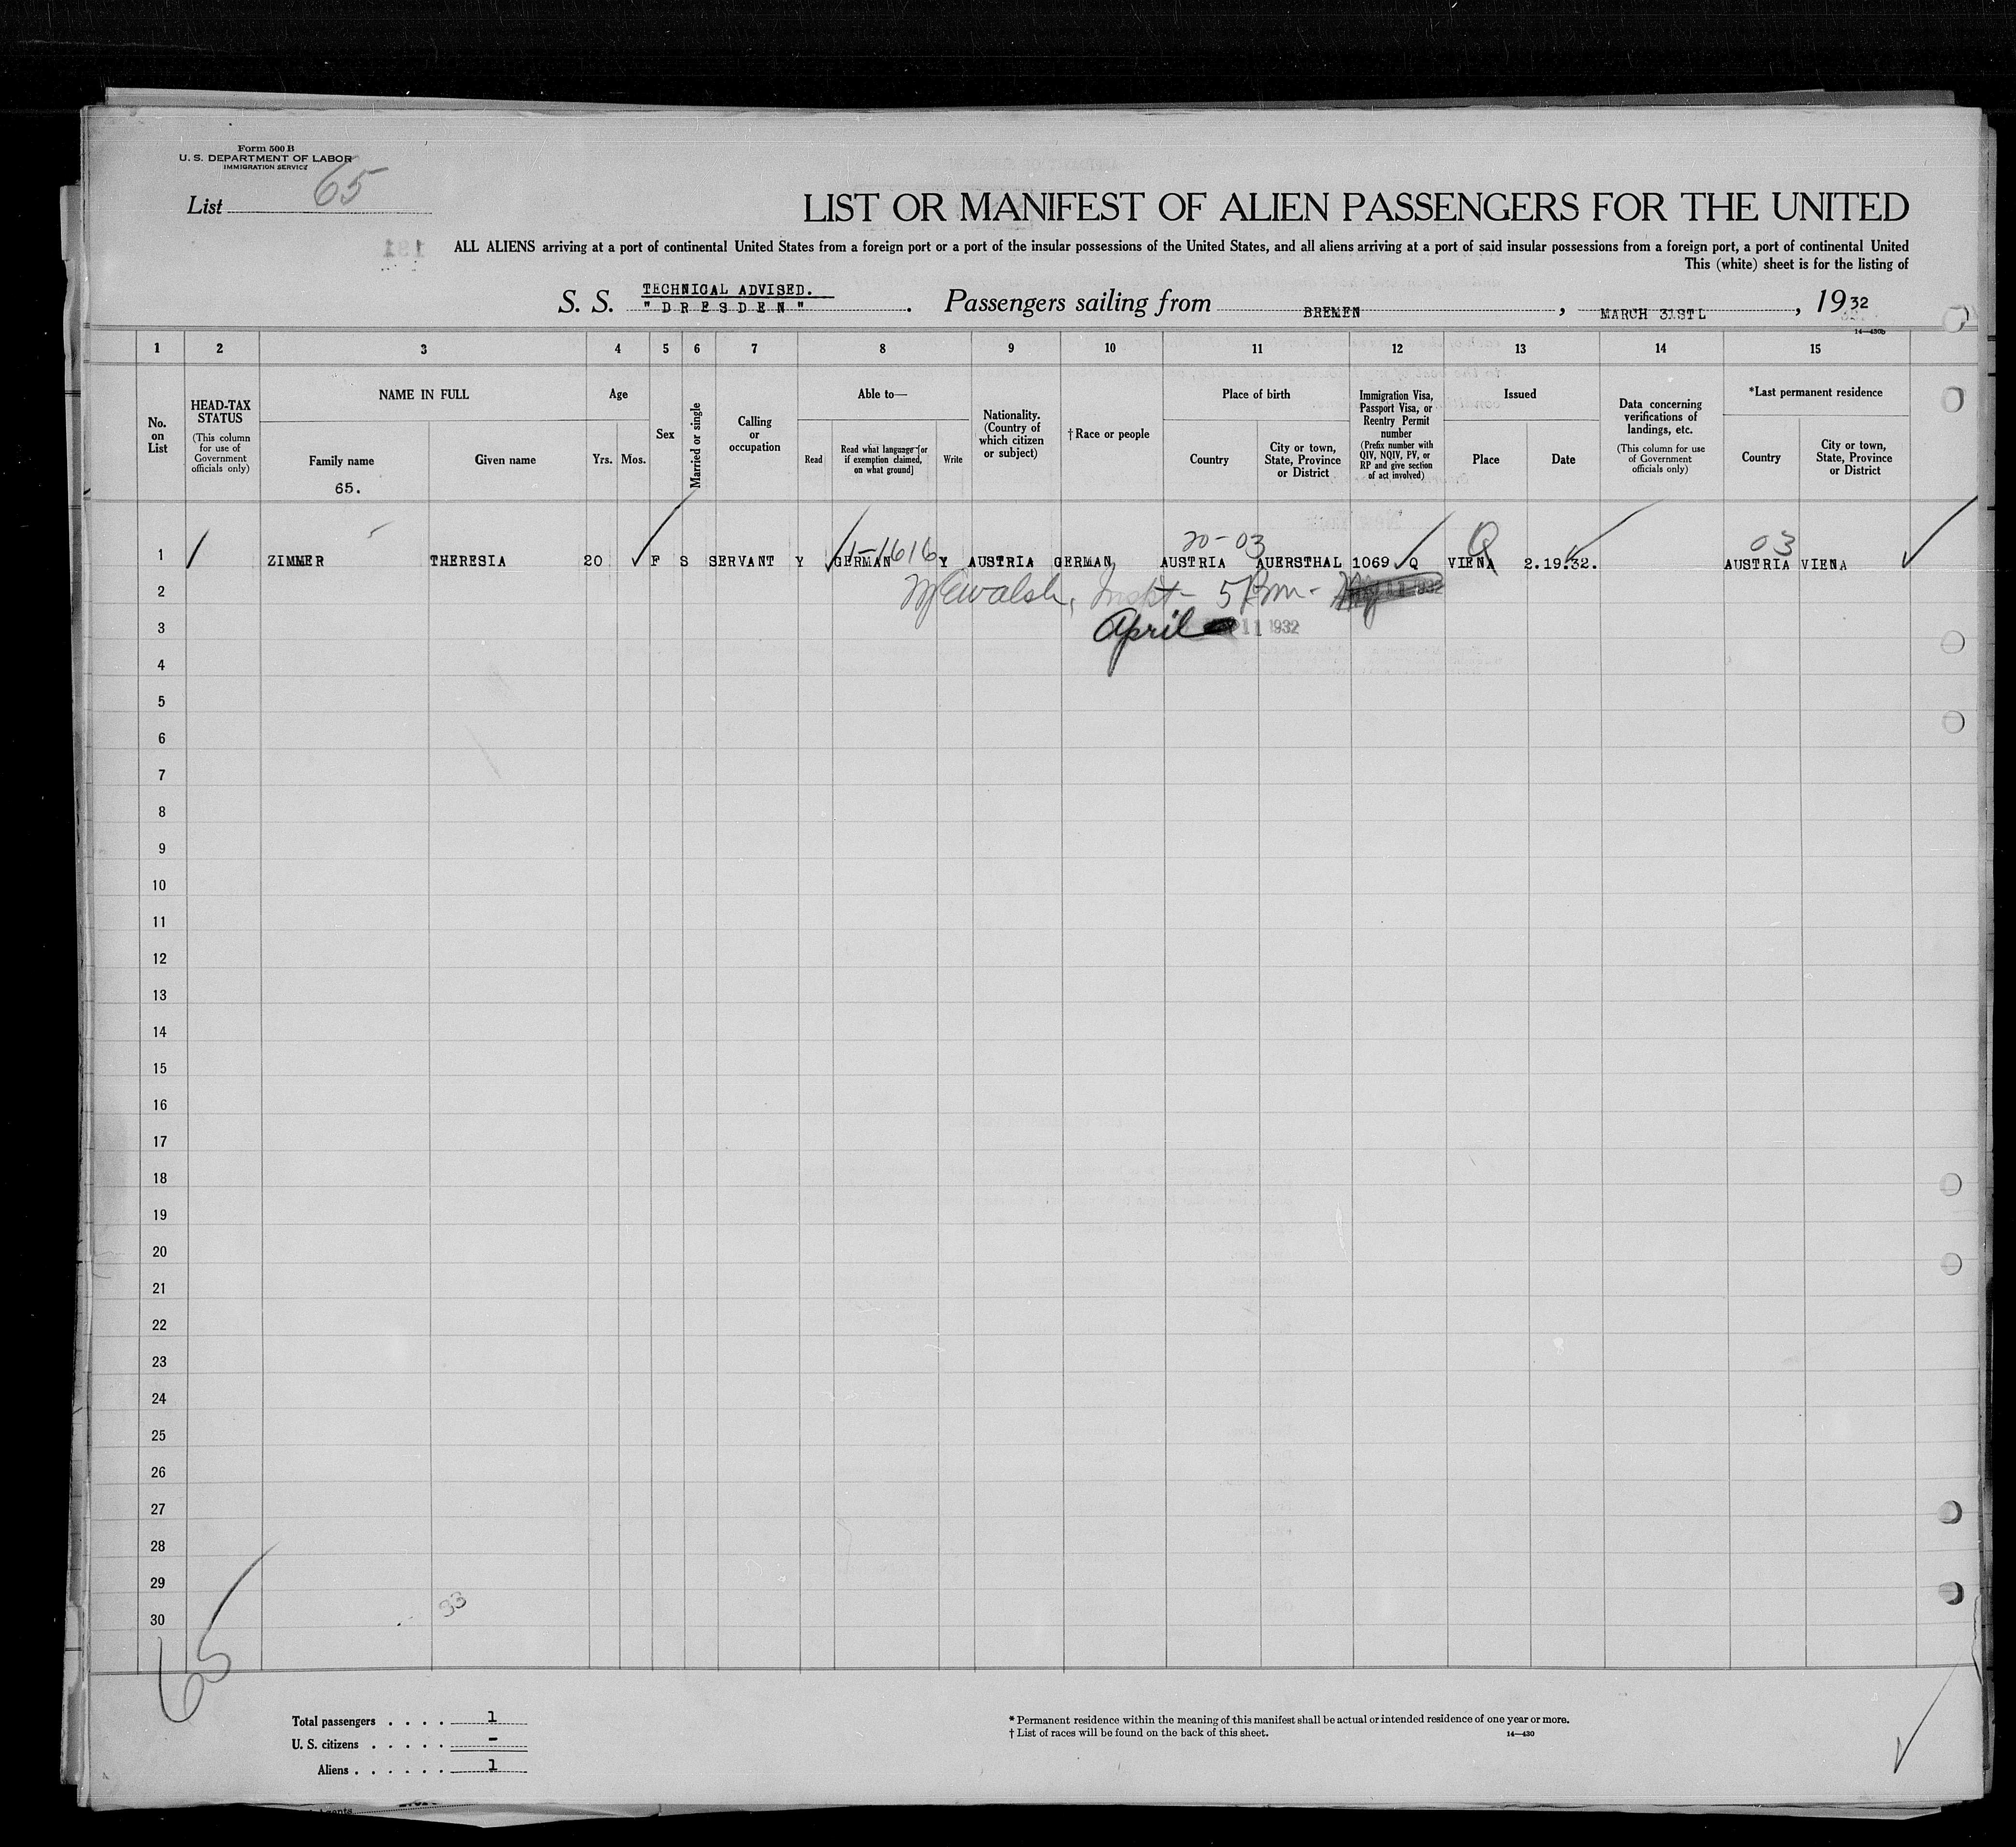 Form 500 B
U. S. DEPARTMENT OF LABOR
IMMIGRATION SERVICE
List 65
LIST OR MANIFEST OF ALIEN PASSENGERS FOR THE UNITED
191
ALL ALIENS arriving at a port of continental United States from a foreign port or a port of the insular possessions of the United States, and all aliens arriving at a port of said insular possessions from a foreign port, a port of continental United
This (white) sheet is for the listing of
TECHNICAL ADVISED.
S. S. "DRESDEN". Passengers sailing from BREMEN, MARCH 31STL, 1932
14—430b
1 2 3 4 5 6 7 8 9 10 11 12 13 14 15
No. on List
HEAD-TAX STATUS
(This column for use of Government officials only)
NAME IN FULL
Family name
65.
Given name
Age
Yrs. Mos.
Sex
Married or single
Calling or occupation
Able to—
Read
Read what language [or if exemption claimed, on what ground]
Write
Nationality. (Country of which citizen or subject)
†Race or people
Place of birth
Country
City or town, State, Province or District
Immigration Visa, Passport Visa, or Reentry Permit number
(Prefix number with QIV, NQIV, PV, or RP and give section of act involved)
Issued
Place
Date
Data concerning verifications of landings, etc.
(This column for use of Government officials only)
*Last permanent residence
Country
City or town, State, Province or District
20-03 Q 03
1 ZIMMER THERESIA 20 F S SERVANT Y GERMAN 1-1616 Y AUSTRIA GERMAN AUSTRIA AUERSTHAL 1069 Q VIENA 2.19.32. AUSTRIA VIENA
2 Walsh, Inspt- 1932
3 April 11 1932
4
5
6
7
8
9
10
11
12
13
14
15
16
17
18
19
20
21
22
23
24
25
26
27
28
29
30
33
65
Total passengers . . . . 1
U. S. citizens . . . . . -
Aliens . . . . . . 1
* Permanent residence within the meaning of this manifest shall be actual or intended residence of one year or more.
† List of races will be found on the back of this sheet.
14—430